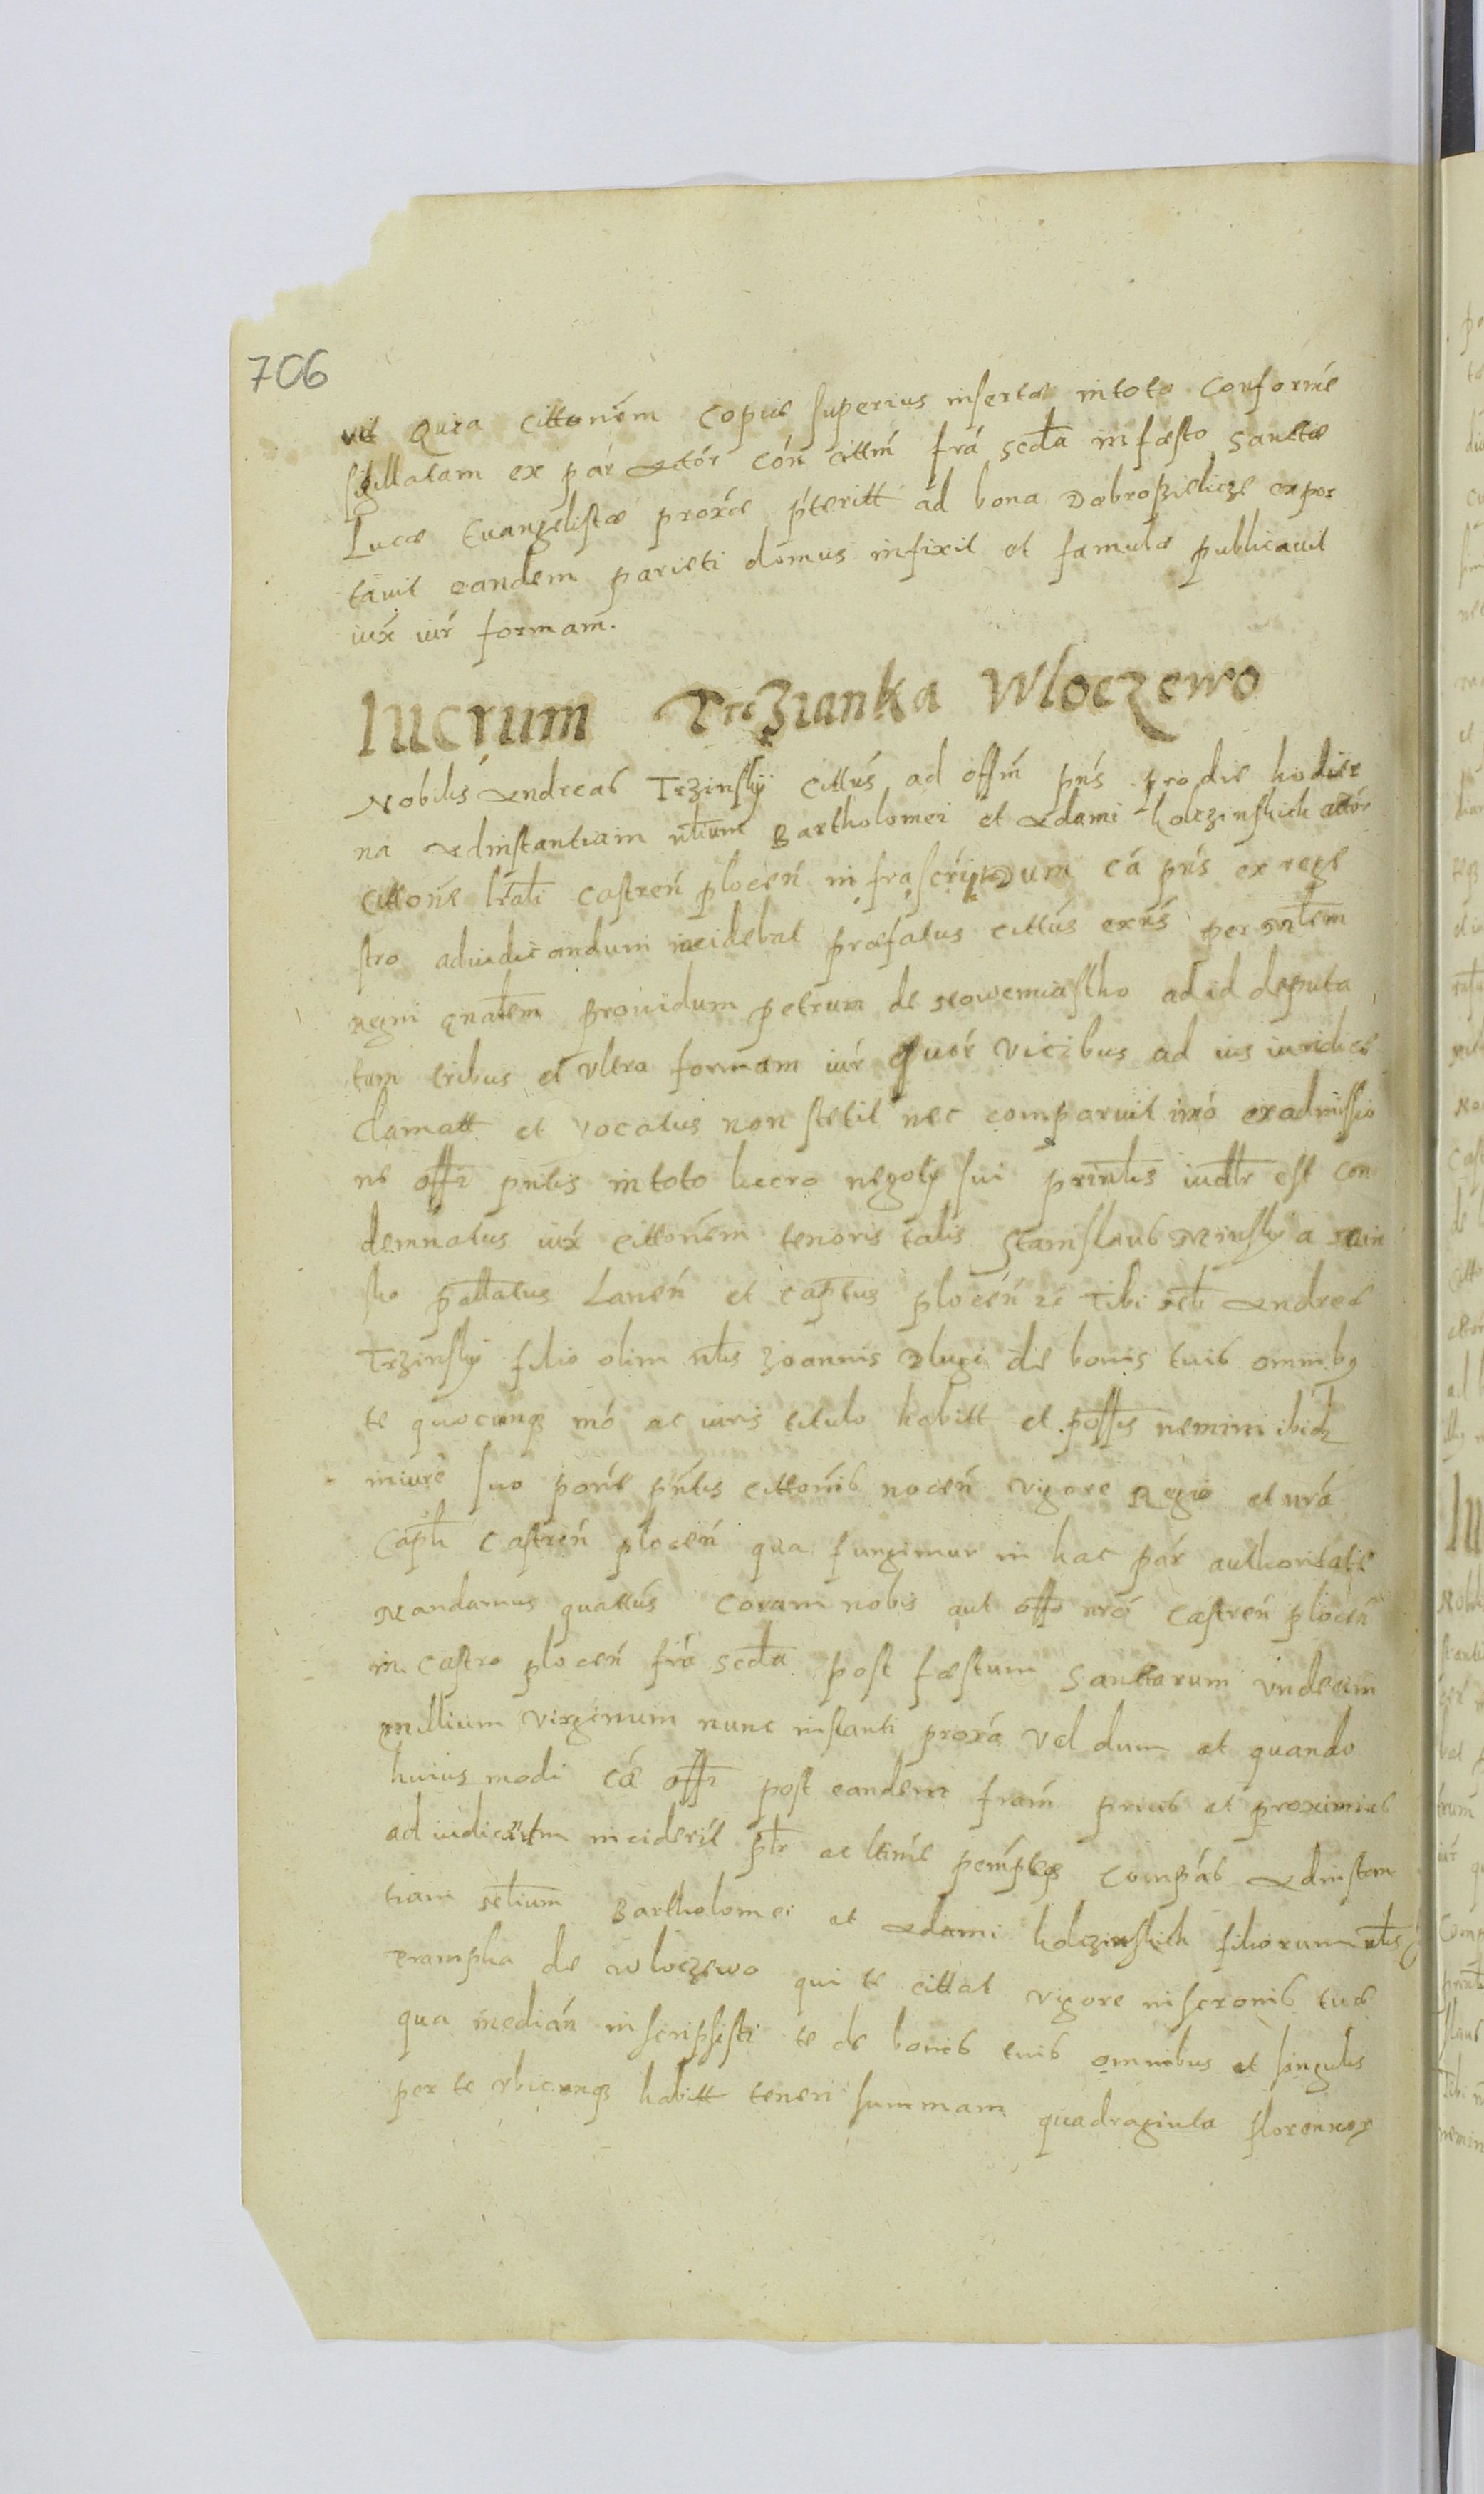 706
vit Quia cittonem copiæ superius insertæ in toto conforme
sigillatam ex par Actor con cittm fra scda in fæsto Sanctæ
Lucæ Euangelistæ proxe pteritt ad bona Dobrosielicze expor
tauit eandem parieti domus infixit et famulæ publicauit
iux iur formam.
lucrum Trzianka Wloczewo
Nobilis Andreas Trzinskÿ cittus ad offm pns pro die hodier
na Ad instantiam nlium Bartholomei et Adami kolczinskich actor
cittone lrali castren plocen infrascriptum ca pns ex rege
stro adiudicandum incidebat præfatus cittus exns per mlem
regni gnalem prouidum petrum de nowemiastho ad id deputa
tum tribus et vltra formam iur quor vicibus ad ius iuridice
clamatt et vocatus non stetit nec comparuit imo ex admissio
ne offi pntis in toto lucro negotÿ sui printis iudlr est con
demnatus iux cittonem tenoris talis Stanislaus Minskÿ a Min
sko pallatus Lanen et captus plocen zc Tibi nbli Andreæ
Trzinskÿ filio olim nlis Joannis Dlugi de bonis tuis omnibq
te quocunq mo ac iuris titulo habitt et possis nemini ibidz
in iure suo pone pntis cittonis nocen vigore Regia et nra
Capli castren plocen qua fungimur in hac par authoritate
Mandamus quattus coram nobis aut offo nro castren plocen
in castro plocen fra scda post fæstum Sanctarum vndecim
millium virginum nunc instanti proxa vel dum et quando
huius modi ca offi post eandem fram prius et proximius
ad iudicatm inciderit plr ac ltime pemptes compas Ad instan
tiam nlium Bartholomei et Adami kolczinskich filiorum nlis
crampka de wloczewo qui te cittat vigore inscronis tuæ
qua median inscripsisti te de bonis tuis omnibus et singulis
per te vbicunq habitt teneri summam quadraginta florenor